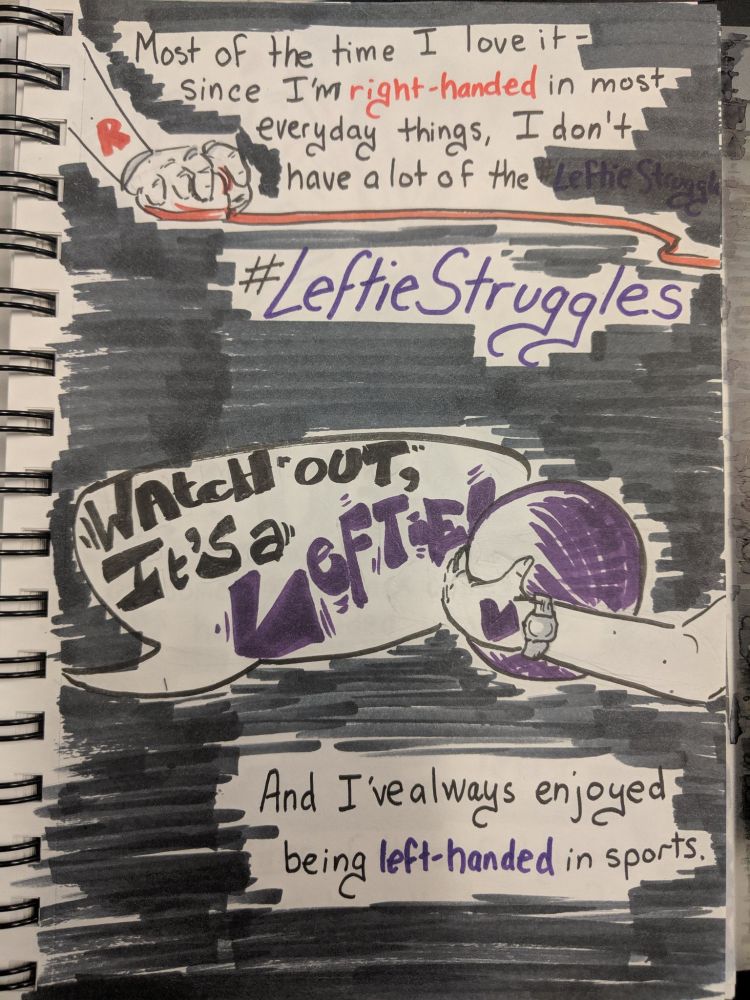 Most of the time I love it-
since I'm right-handed in most
everyday things, I don't
have a lot of the #LeftieStruggle
R
#LeftieStruggles
Watch out,
It's a Leftie!
L
And I've always enjoyed
being left-handed in sports.